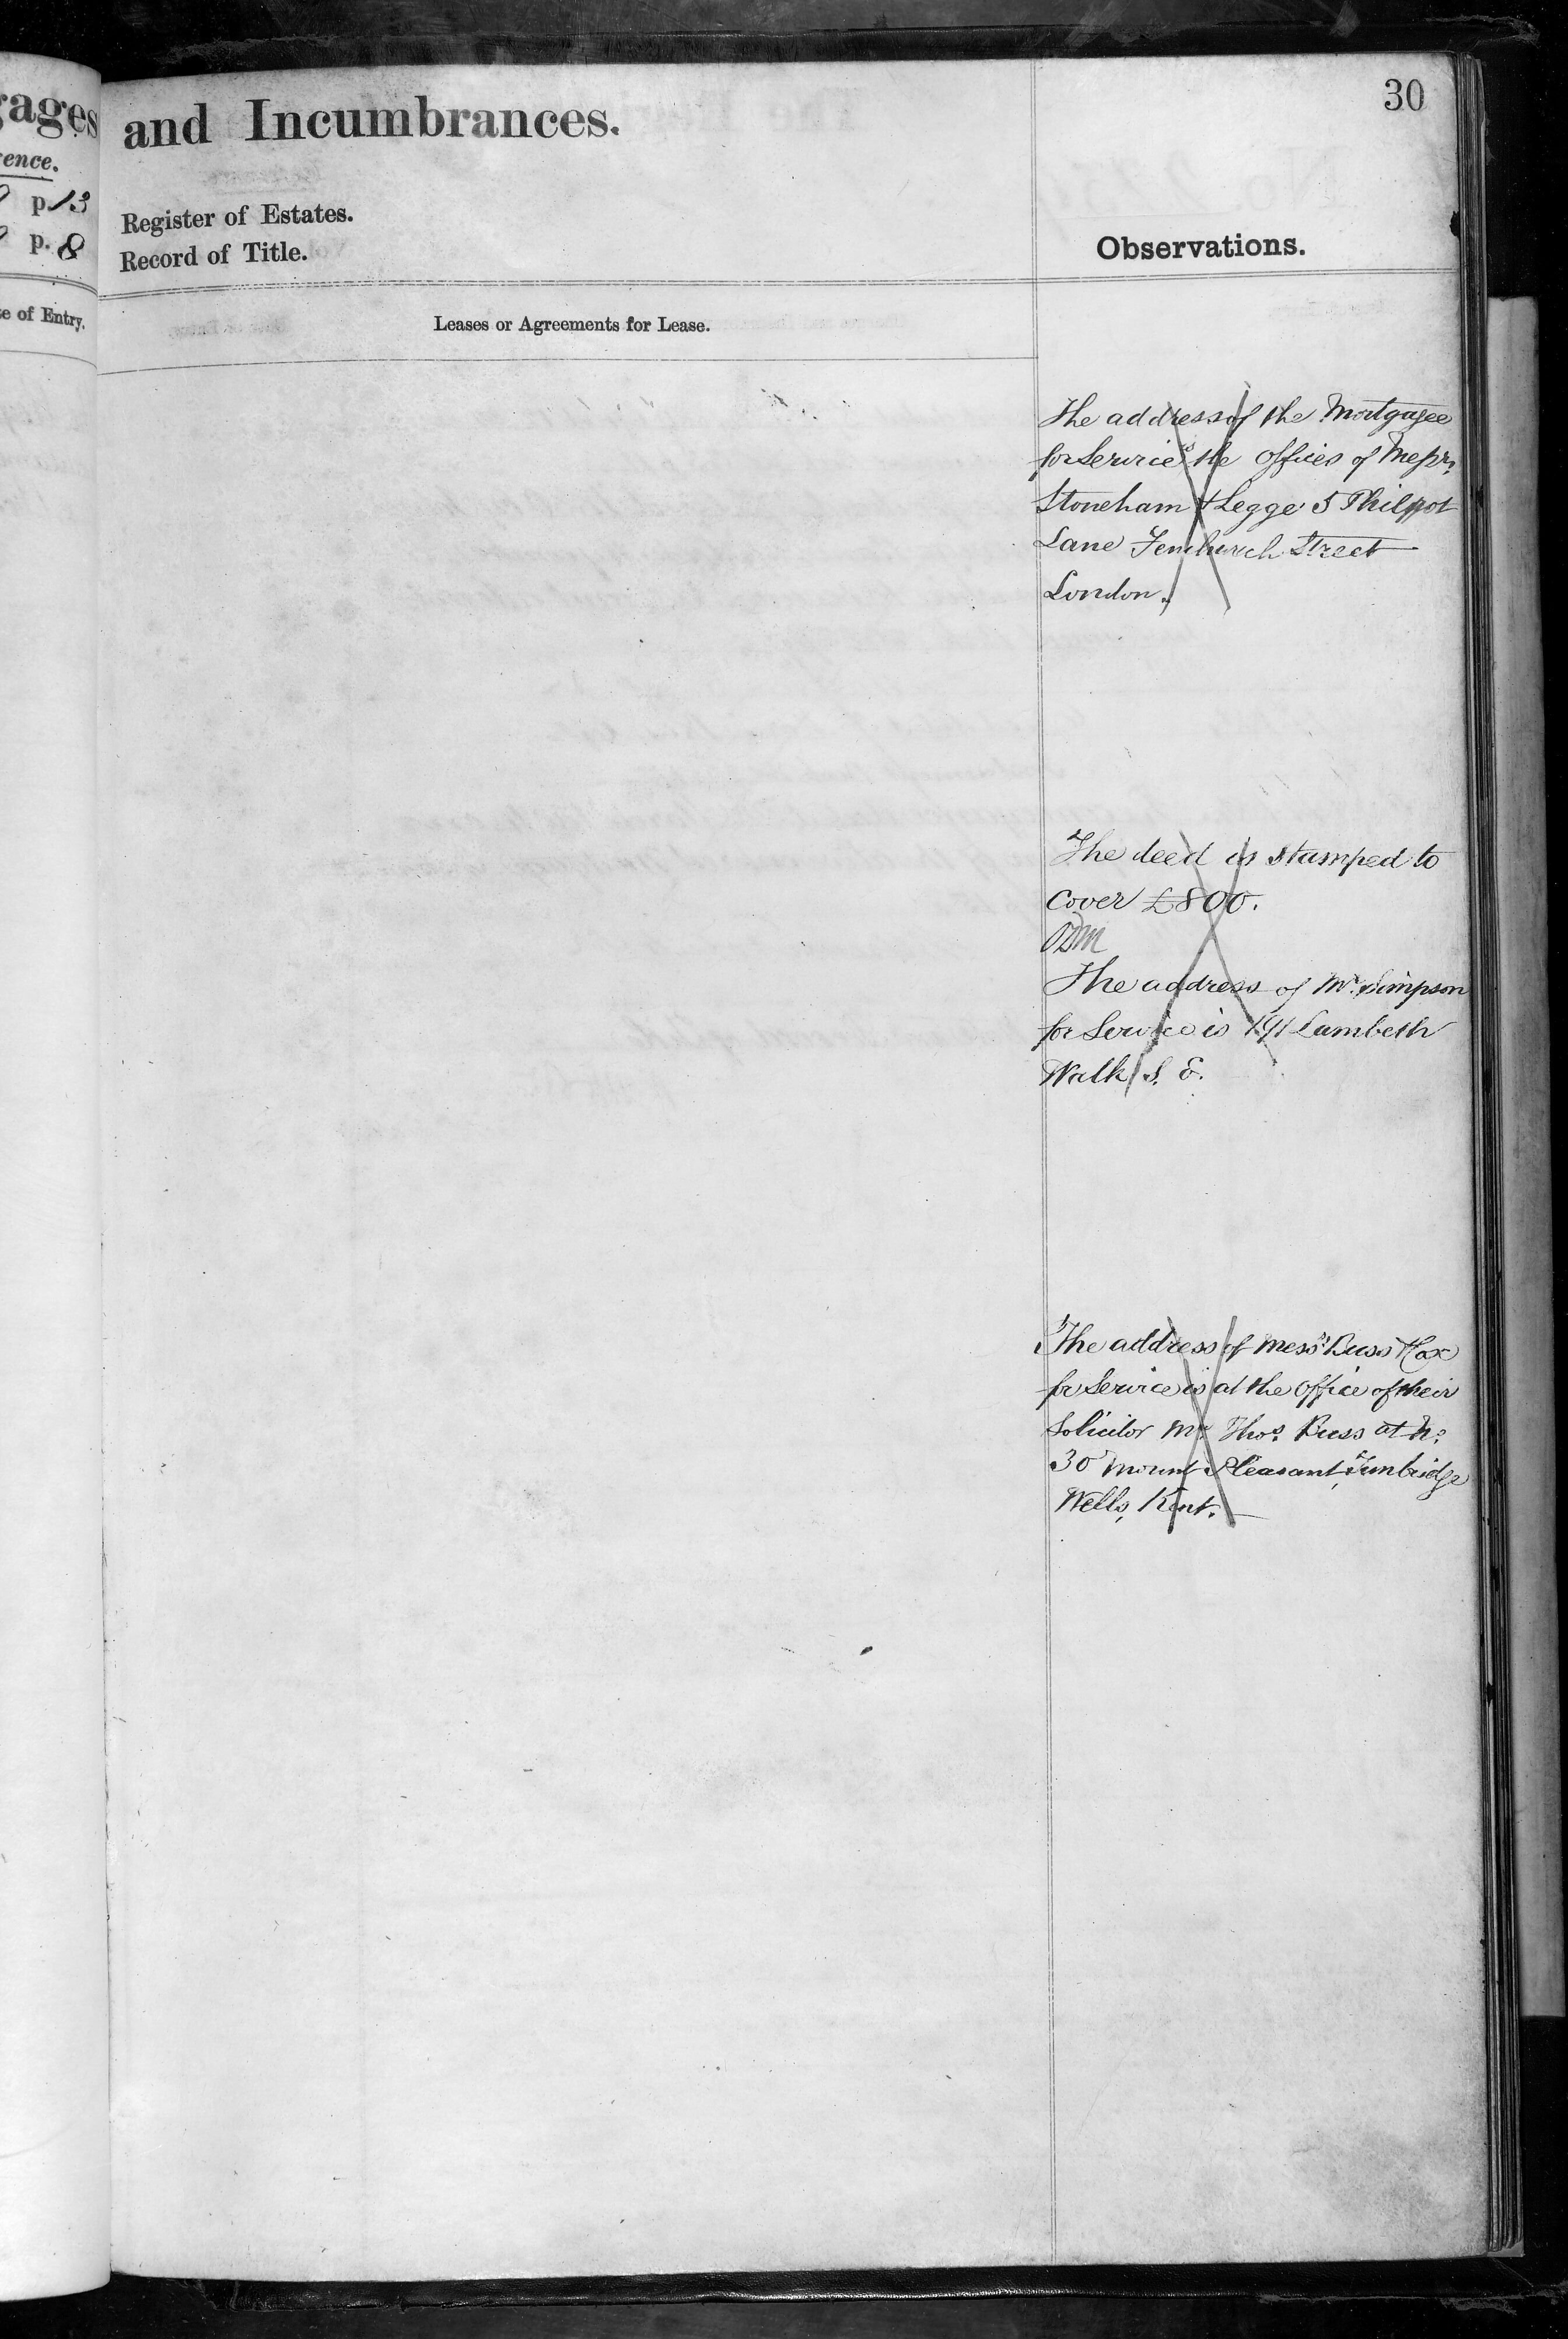 gages
ence.
p. 13
p. 8
e of Entry.
and Incumbrances.
30
Register of Estates.
Record of Title.
Observations.
Leases or Agreements for Lease.
The address of the Mortgagee
for Service is the Offices of Messrs.
Stoneham & Legge 5 Philpot
Lane Fenchurch Street
London.
The deed is stamped to
Cover £800.
The address of Mr. Simpson
for Service is 191 Lambeth
Walk S. E.
The address of Messrs. Buss &
for Service is at the Office of their
Solicitor Mr. Thos. Buss at No.
30 Mount Pleasant, Tunbridge
Wells, Kent.